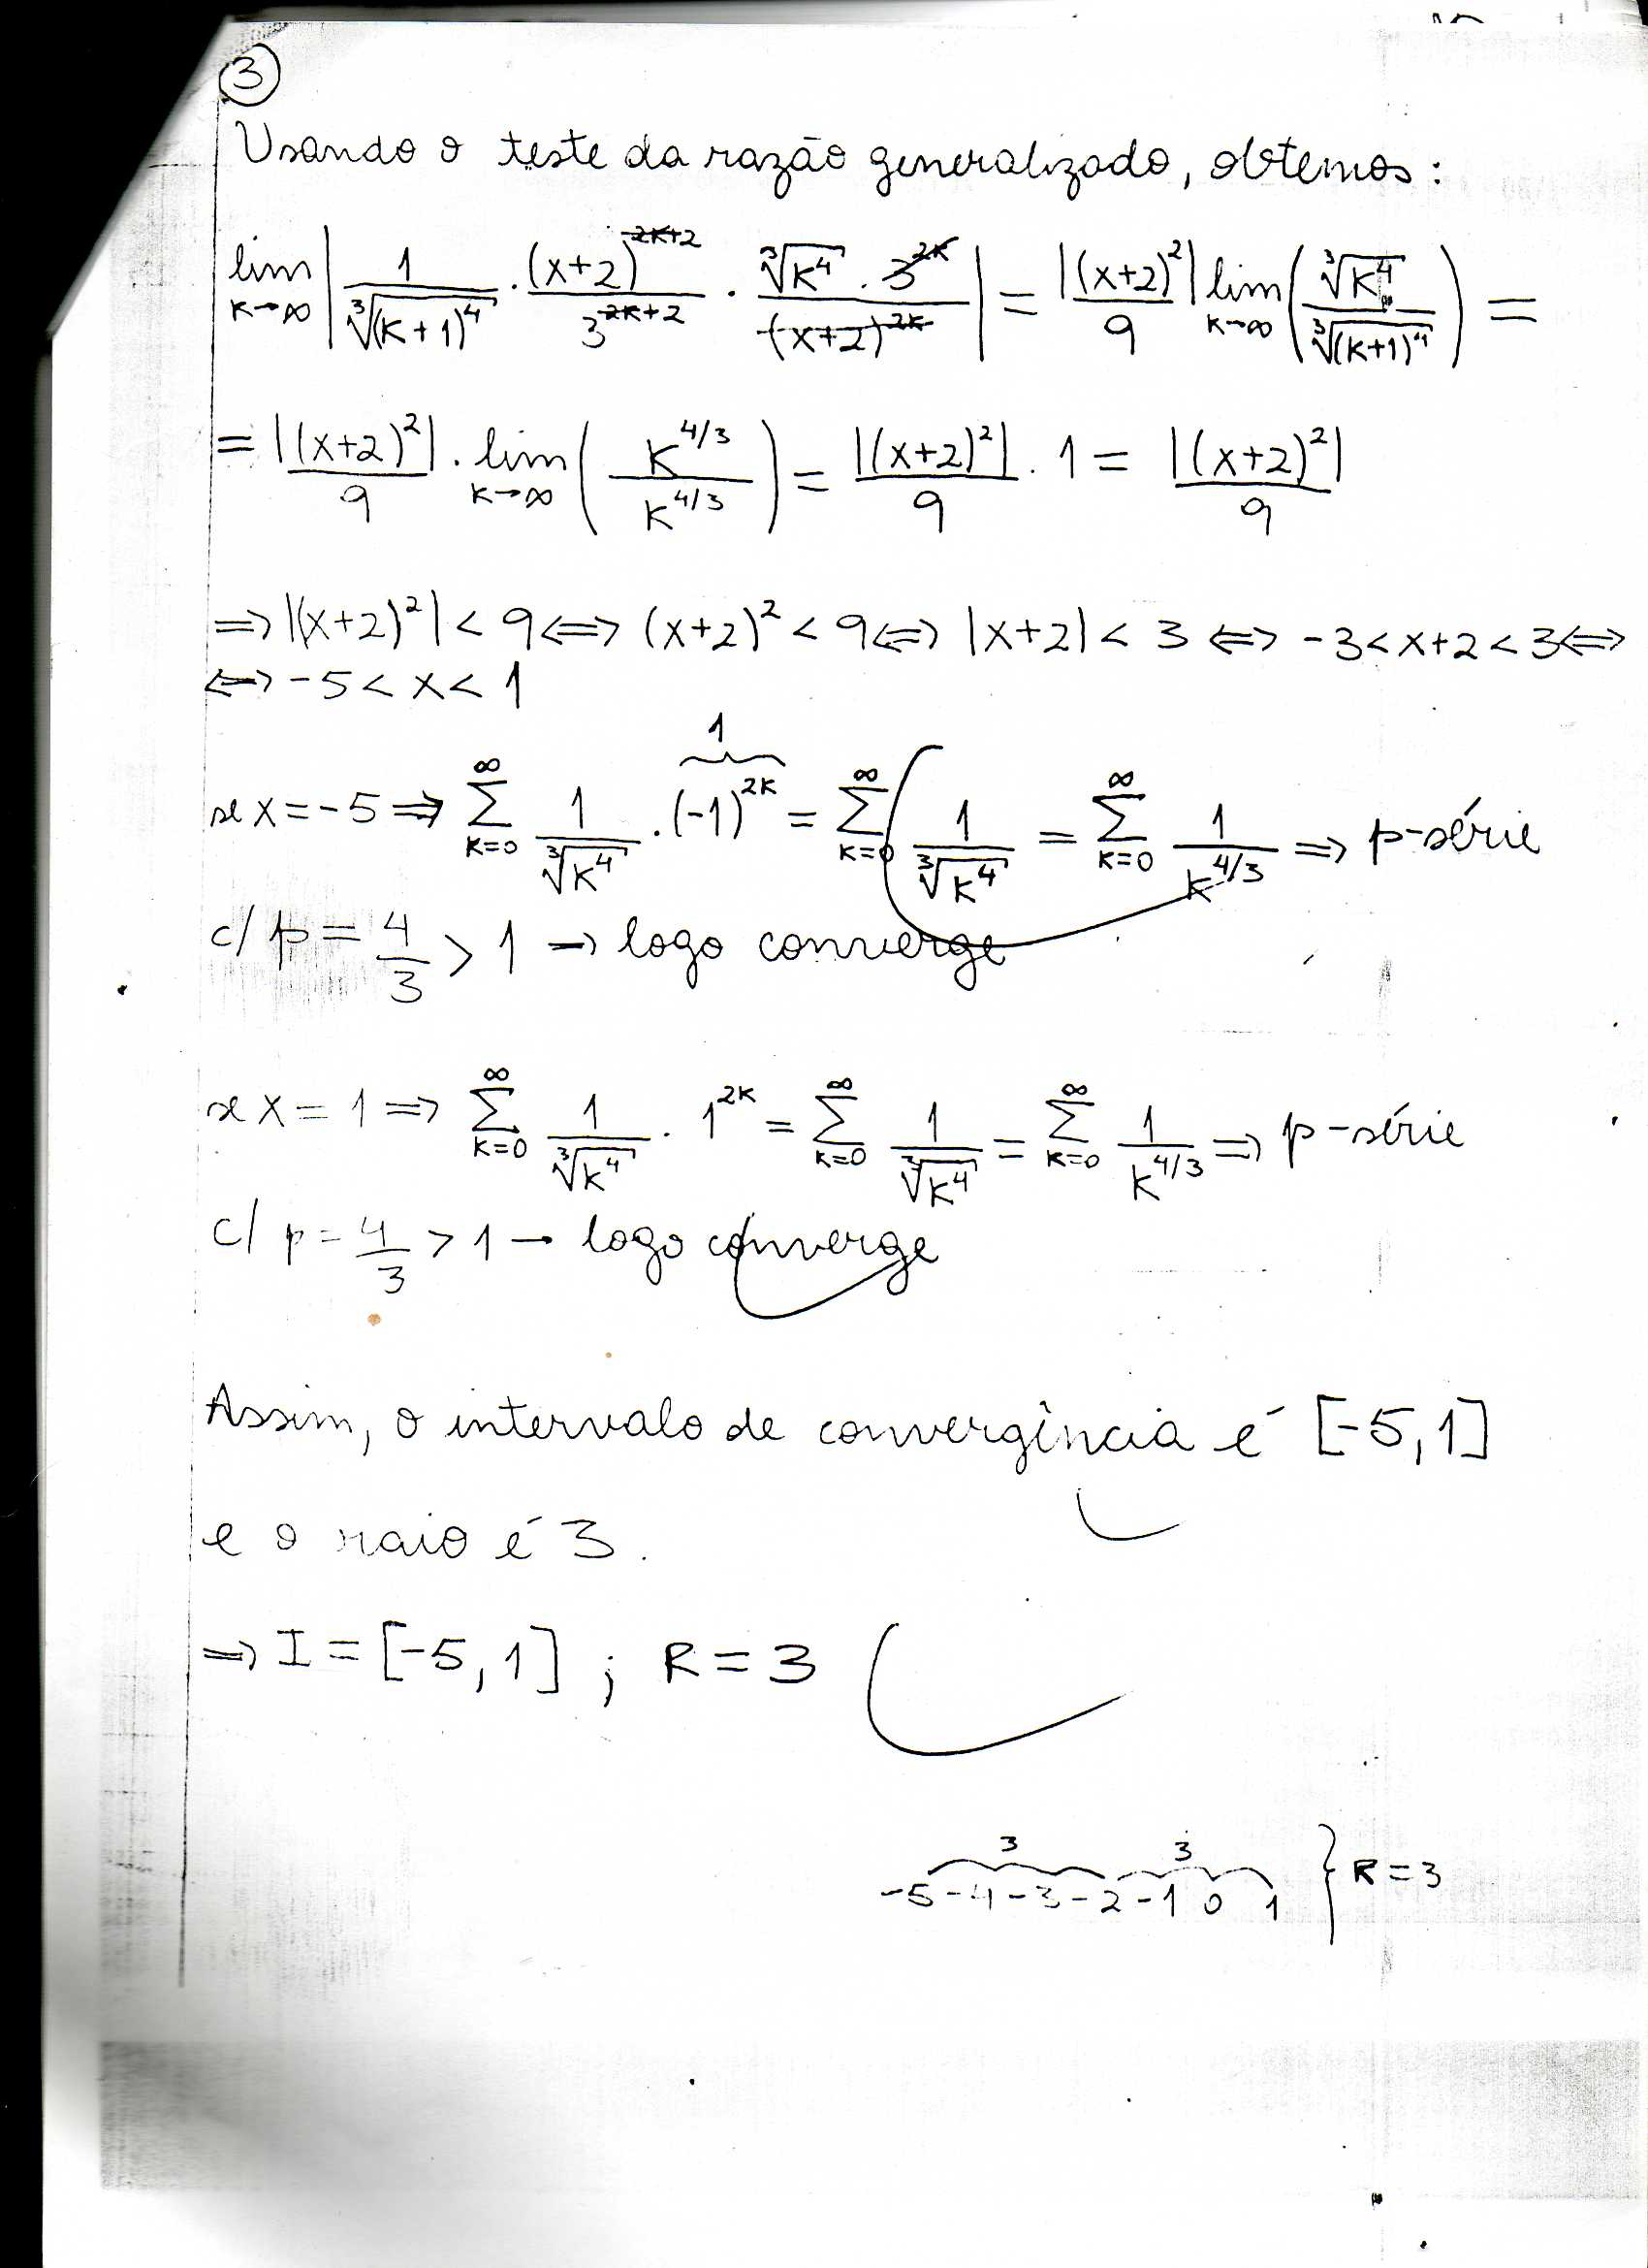 ③
Usando o teste da razão generalizado, obtemos:
lim K→∞ | 1/∛(K+1)^4 · (x+2)^{2K+2}/3^{2K+2} · ∛K^4 · 3^{2K}/(x+2)^{2K} | = |(x+2)^2|/9 lim K→∞ ( ∛K^4/∛(K+1)^4 ) =
= |(x+2)^2|/9 · lim K→∞ ( K^{4/3}/K^{4/3} ) = |(x+2)^2|/9 · 1 = |(x+2)^2|/9
⇒ |(x+2)^2| < 9 ⇔ (x+2)^2 < 9 ⇔ |x+2| < 3 ⇔ -3 < x+2 < 3 ⇔
⇔ -5 < x < 1
1
se x = -5 ⇒ ∑_{K=0}^{∞} 1/∛K^4 · (-1)^{2K} = ∑_{K=0}^{∞} 1/∛K^4 = ∑_{K=0}^{∞} 1/K^{4/3} ⇒ p-série
c/ p = 4/3 > 1 → logo converge
se x = 1 ⇒ ∑_{K=0}^{∞} 1/∛K^4 · 1^{2K} = ∑_{K=0}^{∞} 1/∛K^4 = ∑_{K=0}^{∞} 1/K^{4/3} ⇒ p-série
c/ p = 4/3 > 1 → logo converge
Assim, o intervalo de convergência é [-5, 1]
e o raio é 3.
⇒ I = [-5, 1] ; R = 3
3 3
-5 -4 -3 -2 -1 0 1 } R = 3